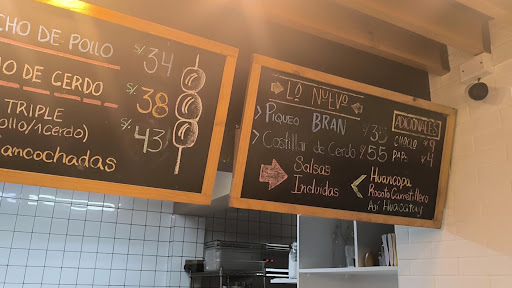 CHO DE POLLO S/. 34
O DE CERDO S/. 38
TRIPLE S/. 43
ollo/1cerdo)
ancochadas
Lo Nuevo
> Piqueo BRAN S/. 35
> Costillar de Cerdo S/. 55
Salsas
Incluidas
Huancopa
Rocoto Carretillero
Ají Huacatay
ADICIONALES
CHOCLO
PAPA 4